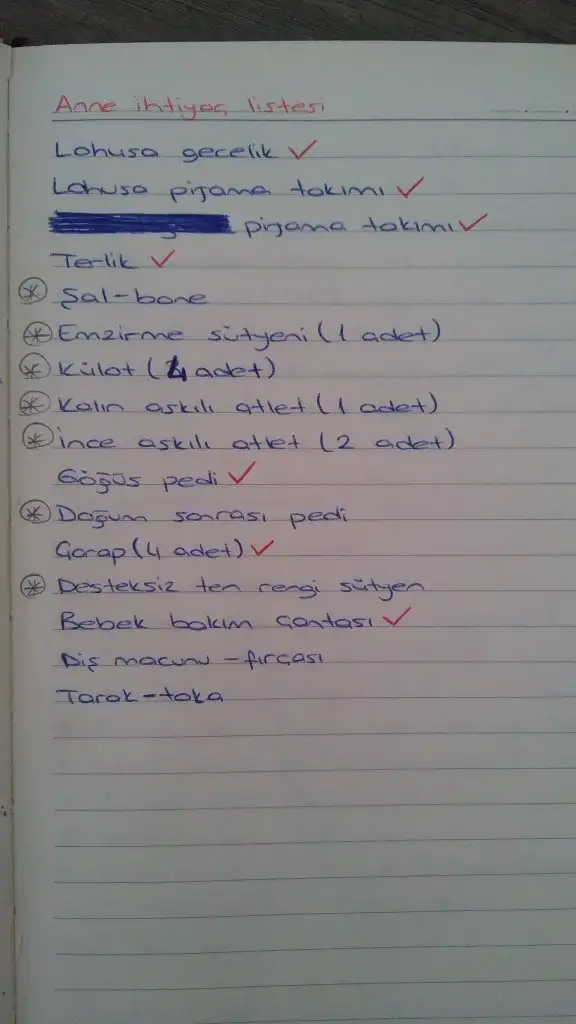 Anne ihtiyaç listesi
Lohusa gecelik ✓
Lohusa pijama takımı ✓
pijama takımı ✓
Terlik ✓
Şal-bone
Emzirme sütyeni (1 adet)
Külot (4 adet)
Kalın askılı atlet (1 adet)
İnce askılı atlet (2 adet)
Göğüs pedi ✓
Doğum sonrası pedi
Çorap (4 adet) ✓
Desteksiz ten rengi sütyen
Bebek bakım çantası ✓
Diş macunu - fırçası
Tarak-toka